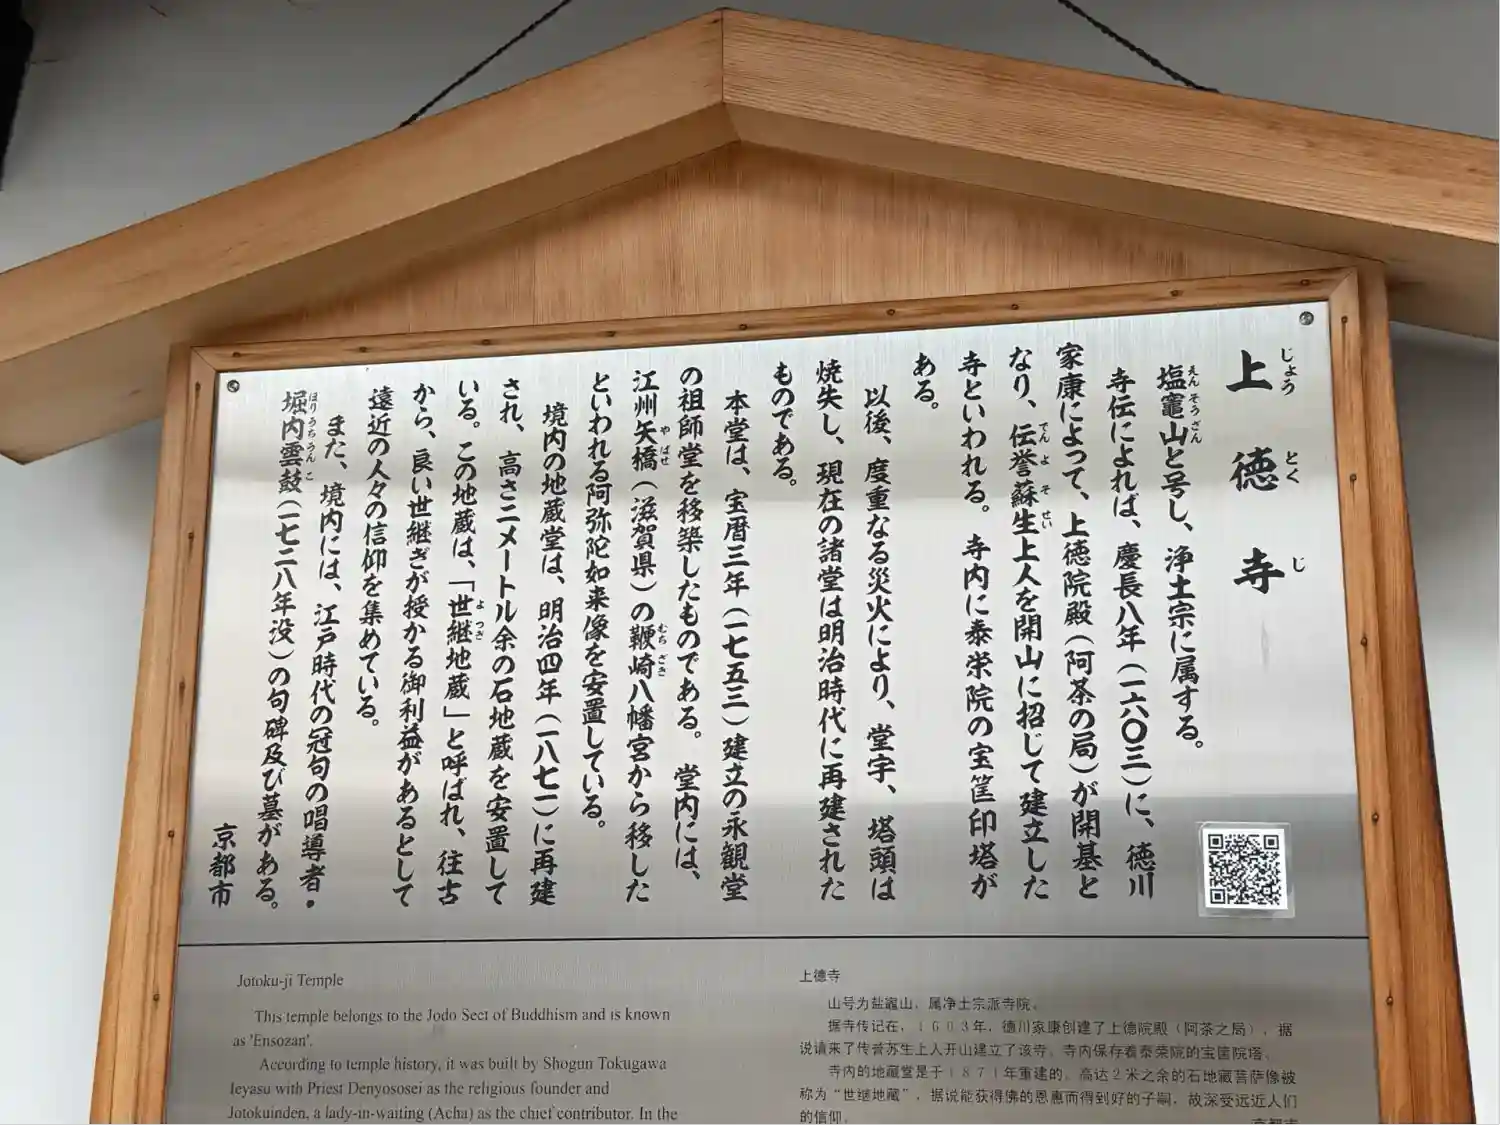 上徳寺
じょうとくじ
塩竈山と号し、浄土宗に属する。
えんそうざん
寺伝によれば、慶長八年（一六〇三）に、徳川
家康によって、上徳院殿（阿茶の局）が開基と
なり、伝誉蘇生上人を開山に招じて建立した
でんよそせい
寺といわれる。寺内に泰栄院の宝筐印塔が
ある。
以後、度重なる災火により、堂宇、塔頭は
焼失し、現在の諸堂は明治時代に再建された
ものである。
本堂は、宝暦三年（一七五三）建立の永観堂
の祖師堂を移築したものである。堂内には、
江州矢橋（滋賀県）の鞭崎八幡宮から移した
やばせ
むちざき
といわれる阿弥陀如来像を安置している。
境内の地蔵堂は、明治四年（一八七一）に再建
され、高さ二メートル余の石地蔵を安置して
いる。この地蔵は、「世継地蔵」と呼ばれ、往古
よつぎ
から、良い世継ぎが授かる御利益があるとして
遠近の人々の信仰を集めている。
また、境内には、江戸時代の冠句の唱導者・
堀内雲鼓（一七二八年没）の句碑及び墓がある。
ほりうちうんこ
京都市
Jotoku-ji Temple
This temple belongs to the Jodo Sect of Buddhism and is known
as 'Ensozan'.
According to temple history, it was built by Shogun Tokugawa
Ieyasu with Priest Denyososei as the religious founder and
Jotokuinden, a lady-in-waiting (Acha) as the chief contributor. In the
上德寺
山号为盐竈山，属净土宗派寺院。
据寺传记在，1603年，德川家康创建了上德院殿（阿茶之局），据
说请来了传誉苏生上人开山建立了该寺。寺内保存着泰荣院的宝箧院塔。
寺内的地藏堂是于1871年重建的，高达2米之余的石地藏菩萨像被
称为“世继地藏”，据说能获得佛的恩惠而得到好的子嗣，故深受远近人们
的信仰。
京都市